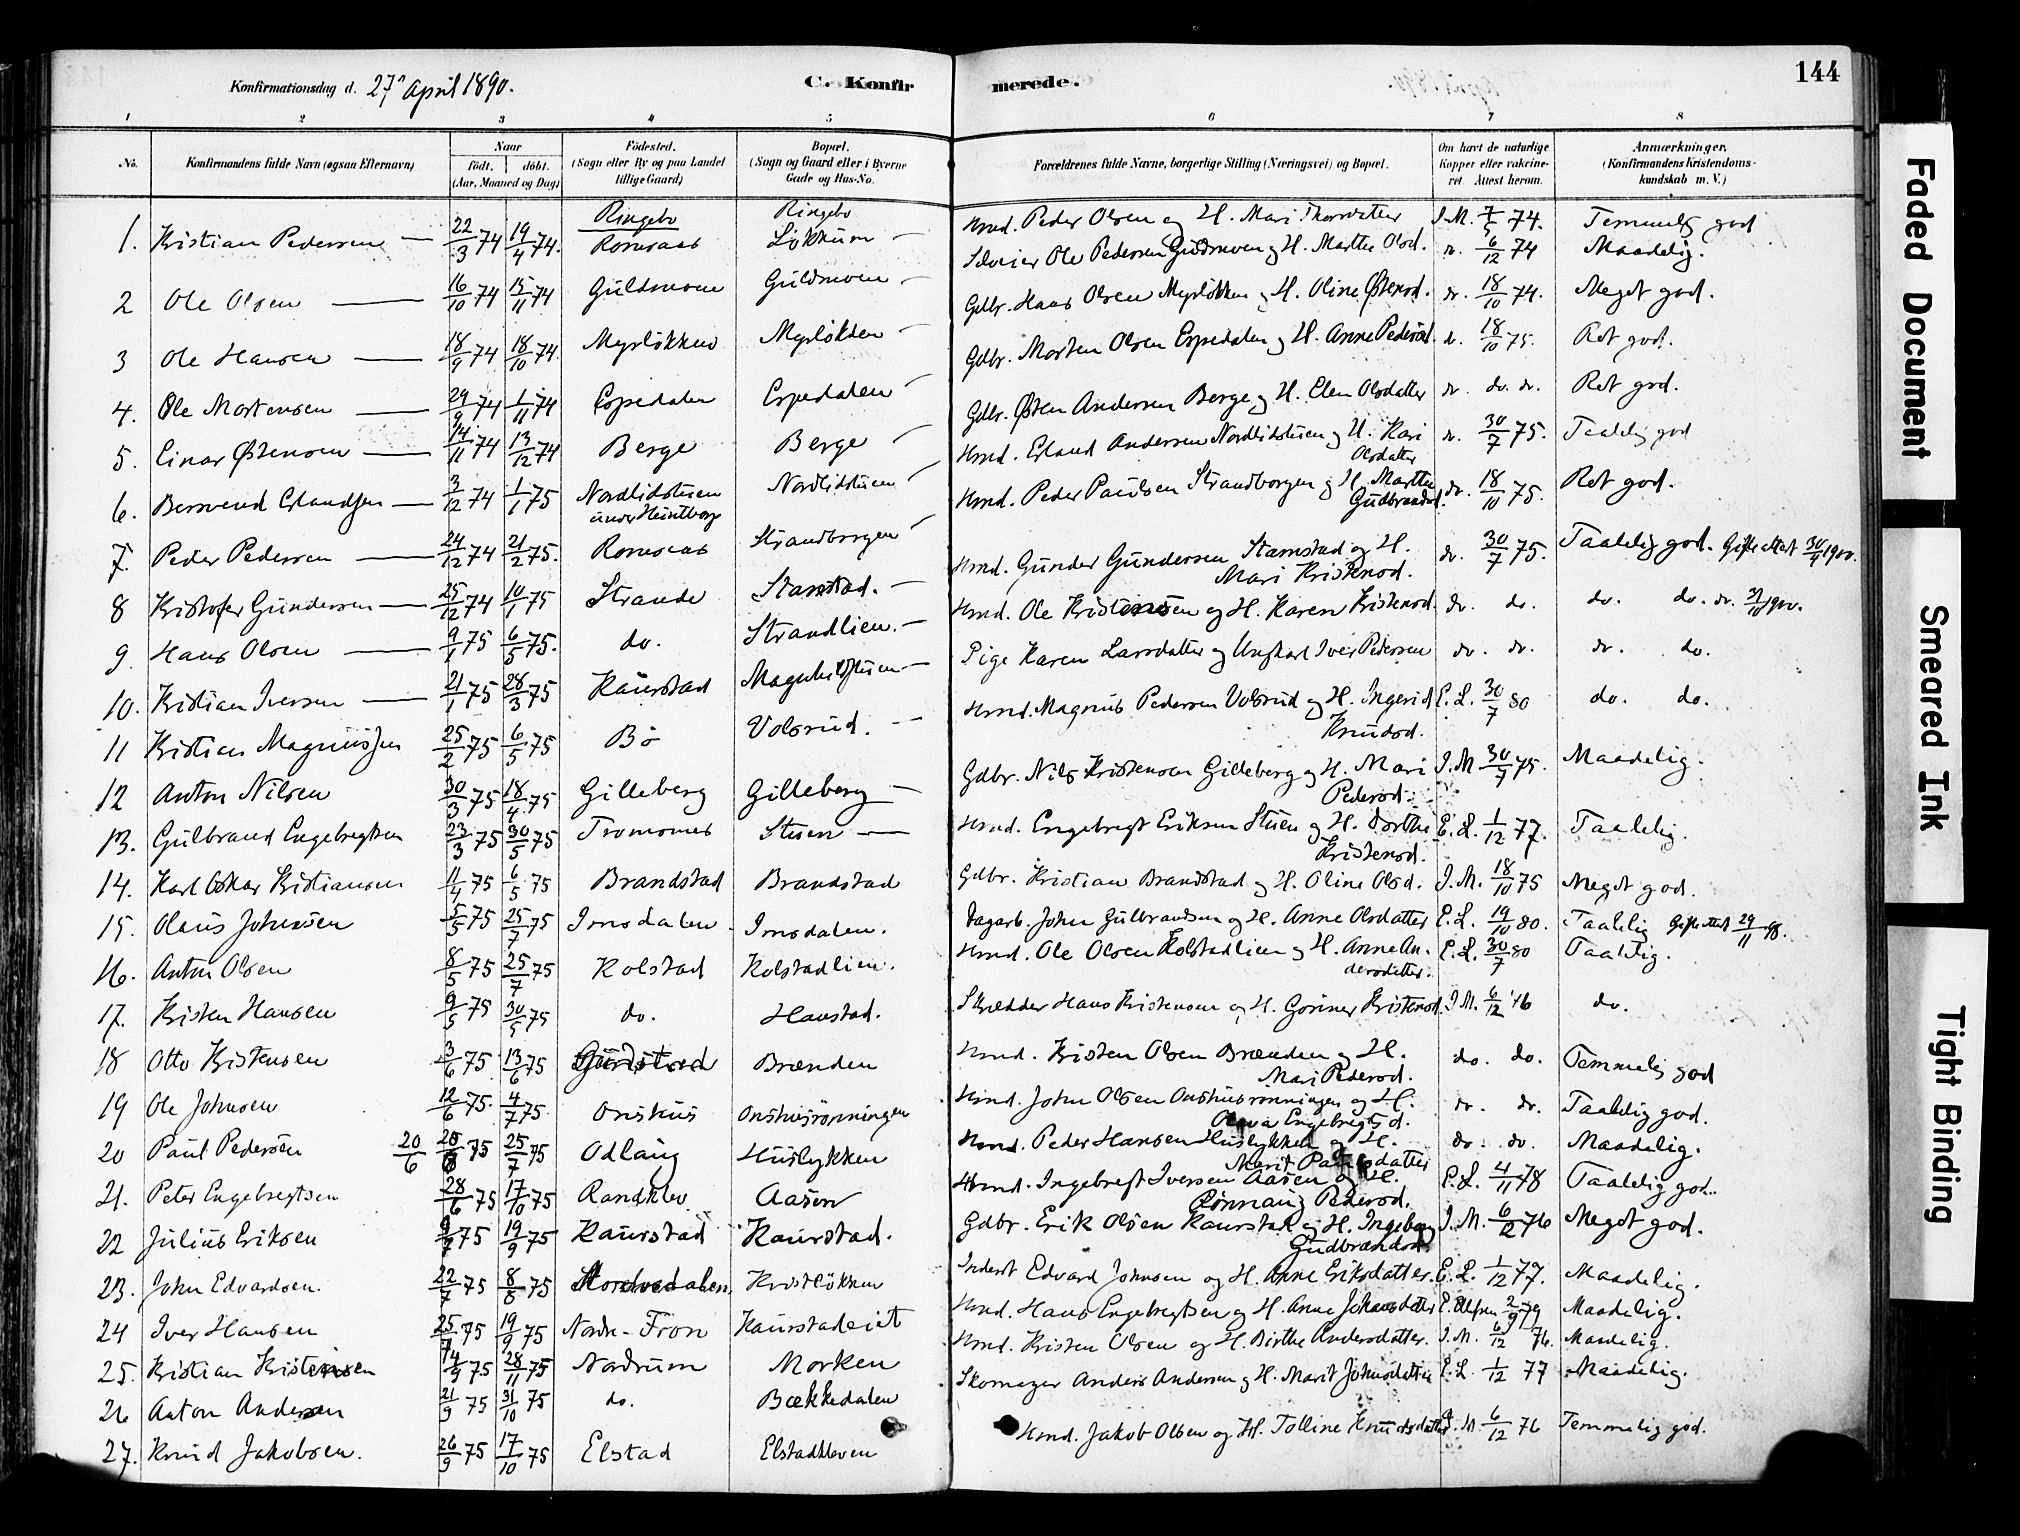 144
Konfirmationsdag d. 27de April 1890.
C. Konfir
merede.
1 2 3 4 5 6 7 8
No.
Konfirmandens fulde Navn (ogsaa Efternavn)
Naar
født. døbt.
(Aar, Maaned og Dag)
Fødested.
(Sogn eller By og paa Landet
tillige Gaard)
Bopæl.
(Sogn og Gaard eller i Byerne
Gade og Hus-No.
Forældrenes fulde Navne, borgerlige Stilling (Næringsvei) og Bopæl.
Om havt de naturlige
Kopper eller vakcine-
ret. Attest herom.
Anmærkninger.
(Konfirmandens Kristendoms-
kundskab m. V.)
1. Kristian Pedersen 22/3 74 19/4 74. Ringebo Romsaas Ringebo Løkkum Hmd. Peder Olsen og H. Mari Thorsdatter I.M. 7/5 74. Temmelig god
2 Ole Olsen 16/10 74 15/11 74 Guldmoen Guldmoen Ole Pedersen Gudmoen og H. Marthe Olsd. do. 6/12 74 Maadelig.
3 Ole Hansen 18/9 74 18/10 74. Myrløkken Myrløkken Gdbr. Hans Olsen Myrløkken og H. Oline Østensd. do. 18/10 74. Meget god.
4. Ole Mortensen 29/9 74 1/11 74 Espedalen Espedalen Gdbr. Morten Olsen Espedalen og H. Anne Pedersd. do. 18/10 75. Ret god.
5. Einar Østensen 14/11 74 13/12 74 Berge Berge Gdbr. Østen Andersen Berge og H. Elen Olsdatter do. do. do. Ret god.
6. Bernvend Erlandsen 3/12 74 1/1 75 Nordlistuen Nordlistuen Hmd. Erland Andersen Nordlistuen og H. Kari
Olsdatter do. 30/7 75. Taalelig god
7. Peder Pedersen 24/12 74 21/2 75. Romsaas Strandborgen Hmd. Peder Paulsen Strandborgen og H. Marthe
Gudbrandsd. do. 18/10 75. Ret god.
8 Kristofer Gundersen 25/12 74 10/1 75 Strande Stamstad. Hmd. Gunder Gundersen Stamstad og H.
Mari Kristensd. do. 30/7 75. Taalelig god. Gifteattest 1900.
9 Hans Olsen 9/1 75 6/5 75. do. Strandlien. Hmd. Ole Kristensen og H. Karen Kristensd. do. do. do. do. do. 1900.
10. Kristian Iversen 21/1 75 28/3 75 Kaurstad Pige Karen Larsdatter og Ungkarl Iver Pedersen do. do. do. do.
11 Kristian Magnussen 25/2 75 6/5 75 Bø Volsrud. Hmd. Magnus Pedersen Volsrud og H. Ingerid
Knudsd. E.L. 30/7 80 do. do.
12 Anton Nilsen 30/3 75 18/4 75 Gilleberg Gilleberg Gdbr. Nils Kristensen Gilleberg og H. Mari
Pedersd. I.M. 30/7 75. Maadelig.
13. Gulbrand Engebregtsen 23/3 75 30/5 75 Tromsnes Stuen Hmd. Engebregt Eriksen Stuen og H. Dorthe
Kristensd. E.L. 1/12 77. Taalelig.
14. Karl Oskar Kristiansen 11/4 75 6/5 75 Brandstad Brandstad Gdbr. Kristian Brandstad og H. Oline Olsd. I.M. 18/10 75 Meget god.
15. Olaus Johnsen 5/5 75 25/7 75 Imsdalen Imsdalen. Dagarb. John Gulbrandsen og H. Anne Olsdatter E.L. 19/10 80. Taalelig Gifteattest 29/11 98.
16. Anton Olsen 8/5 75 25/7 75 Kolstad Kolstadlien. Hmd. Ole Olsen Kolstadlien og H. Anne An-
dersdatter. E.L. 30/7 80 Taalelig.
17. Kristen Hansen 9/5 75 30/5 75 do. Haustad. Skrædder Hans Kristensen og H. Goriner Kristensd. I.M. 6/12 76 do.
18 Otto Kristensen 3/6 75 13/6 75 Brænden Hmd. Kristen Olsen Brænden og H.
Mari Pedersd. do. do. Temmelig god
19 Ole Johnsen 12/6 75. 4/7 75. Onshus Onshusrønningen Hmd. John Olsen Onshusrønningen og H.
Engebregtsd. do. do. Taalelig god.
20 Paul Pedersen 20/6 20/6 75 25/7 75 Odlaug Huslykken Hmd. Peder Hansen Huslykken og H.
Marit Paulsdatter do. do. Maadelig.
21. Peter Engebregtsen 28/6 75 17/10 75 Randklev Aasen Hmd. Ingebregt Iversen Aasen og H.
Rønnaug Pedersd. E.L. 4/11 78 Taalelig god.
22 Julius Eriksen 9/7 75 19/9 75 Kaurstad Kaurstad. Gdbr. Erik Olsen Kaurstad og H. Ingeborg
Gudbrandsd. I.M. 6/12 76 Meget god.
23. John Edvardsen. 22/7 75 8/8 75 Kristløkken Inderst Edvard Johnsen og H. Anne Eriksdatter. E.L. 1/12 77. Maadelig.
24 Iver Hansen 25/7 75 19/9 75 Nordre-Fron Kaurstadeiet Hmd. Hans Engebregtsen og H. Anne Johansdatter 2/9 79 Maadelig.
25. Kristian Kristensen 14/9 75 28/11 75 Nordrum Morken Hmd. Kristen Olsen og H. Birthe Andersdatter. I.M. 6/12 76. Maadelig.
26 Anton Andersen 21/9 75 31/10 75 do. Bækkedalen Skomager Anders Andersen og H. Marit Johnsdatter E.L. 1/12 77 Maadelig.
27. Knud Jakobsen. 26/9 75 17/10 75 Elstad Elstadkleven Hmd. Jakob Olsen og H. Tolline Knudsdatter I.M. 6/12 76 Temmelig god.
Faded Document
Smeared Ink
Tight Binding